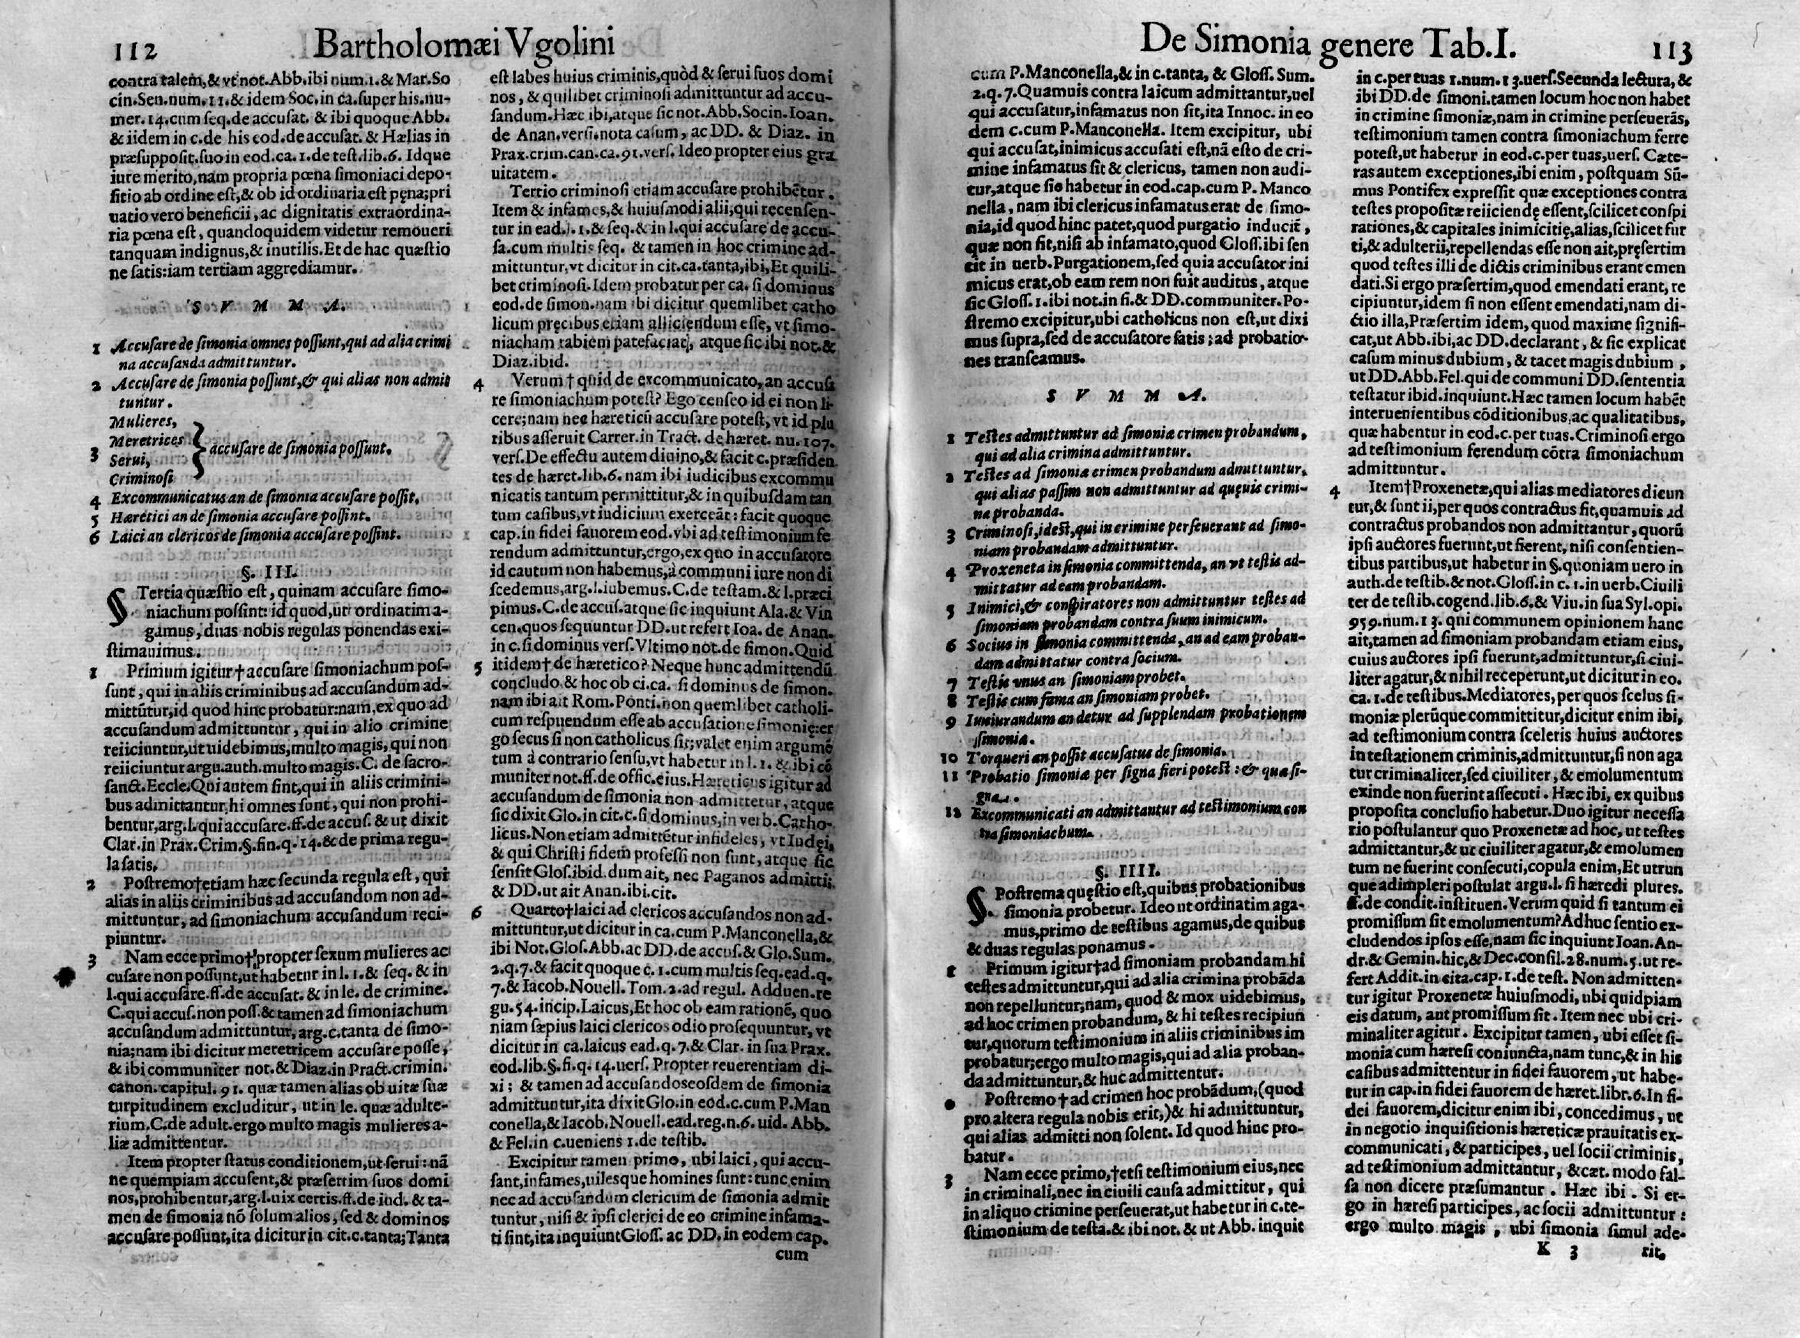 112
Bartholomæi Vgolini
contra talem,& vt not. Abb. ibi num. 1. & Mar. So
cin. Sen. num. 11. & idem Soc. in ca. super his. nu-
mer. 14. cum seq. de accusat. & ibi quoque Abb.
& iidem in c. de his eod. de accusat. & Hælias in
præsupposit. suo in eod. ca. 1. de test. lib. 6. Idque
iure merito, nam propria pœna simoniaci depo-
sitio ab ordine est, & ob id ordinaria est pęna; pri
uatio vero beneficii, ac dignitatis extraordina-
ria pœna est, quandoquidem videtur remoueri
tanquam indignus, & inutilis. Et de hac quæstio
ne satis: iam tertiam aggrediamur.
S V M M A.
1 Accusare de simonia omnes possunt, qui ad alia crimi
na accusanda admittuntur.
2 Accusare de simonia possunt, & qui alias non admit
tuntur.
Mulieres,
Meretrices
3 Serui, accusare de simonia possunt.
Criminosi
4 Excommunicatus an de simonia accusare possit.
5 Hæretici an de simonia accusare possint.
6 Laici an clericos de simonia accusare possint.
§. III.
§ Tertia quæstio est, quinam accusare simo-
niachum possint: id quod, ut ordinatim a-
gamus, duas nobis regulas ponendas exi-
stimauimus.
1 Primum igitur† accusare simoniachum pos-
sunt, qui in aliis criminibus ad accusandum ad-
mittūtur, id quod hinc probatur: nam, ex quo ad
accusandum admittuntur, qui in alio crimine
reiiciuntur, ut uidebimus, multo magis, qui non
reiiciuntur argu. auth. multo magis. C. de sacro-
sanct. Eccle. Qui autem sint, qui in aliis crimini-
bus admittantur, hi omnes sunt, qui non prohi-
bentur, arg. l. qui accusare. ff. de accus. & ut dixit
Clar. in Prax. Crim. §. fin. q. 14. & de prima regu-
la satis.
2 Postremo† etiam hæc secunda regula est, qui
alias in aliis criminibus ad accusandum non ad-
mittuntur, ad simoniachum accusandum reci-
piuntur.
3 Nam ecce primo† propter sexum mulieres ac
cusare non possunt, ut habetur in l. 1. & seq. & in
l. qui accusare. ff. de accusat. & in le. de crimine.
C. qui accus. non poss. & tamen ad simoniachum
accusandum admittuntur, arg. c. tanta de simo-
nia; nam ibi dicitur meretricem accusare posse,
& ibi communiter not. & Diaz. in Pract. crimin.
canon. capitul. 91. quæ tamen alias ob uitæ suæ
turpitudinem excluditur, ut in le. quæ adulte-
rium. C. de adult. ergo multo magis mulieres a-
liæ admittentur.
Item propter status conditionem, ut serui: nā
ne quempiam accusent, & præsertim suos domi
nos, prohibentur, arg. l. uix certis. ff. de iud. & ta-
men de simonia nō solum alios, sed & dominos
accusare possunt, ita dicitur in cit. c. tanta; Tanta
est labes huius criminis, quòd & serui suos domi
nos, & quilibet criminosi admittuntur ad accu-
sandum. Hæc ibi, atque sic not. Abb. Socin. Ioan.
de Anan. versi. nota casum, ac DD. & Diaz. in
Prax. crim. can. ca. 91. vers. Ideo propter eius gra
uitatem.
Tertio criminosi etiam accusare prohibētur.
Item & infames, & huiusmodi alii; qui recensen-
tur in ead. l. 1. & seq. & in l. qui accusare de accu-
sa. cum multis seq. & tamen in hoc crimine ad-
mittuntur, vt dicitur in cit. ca. tanta, ibi, Et quili-
bet criminosi. Idem probatur per ca. si dominus
eod. de simon. nam ibi dicitur quemlibet catho
licum pręcibus etiam alliciendum esse, vt simo-
niacham rabiem patefaciat, atque sic ibi not. &
Diaz. ibid.
4 Verum† quid de excommunicato, an accusa
re simoniachum potest? Ego censeo id ei non li-
cere; nam nec hæreticū accusare potest, vt id plu
ribus asseruit Carrer. in Tract. de hæret. nu. 107.
vers. De effectu autem diuino, & facit c. præsiden
tes de hæret. lib. 6. nam ibi iudicibus excommu
nicatis tantum permittitur, & in quibusdam tan
tum casibus, vt iudicium exerceāt: facit quoque
cap. in fidei fauorem eod. vbi ad testimonium fe
rendum admittuntur, ergo, ex quo in accusatore
id cautum non habemus, à communi iure non di
scedemus, arg. l. iubemus. C. de testam. & l. præci
pimus. C. de accus. atque sic inquiunt Ala. & Vin
cen. quos sequuntur DD. ut refert Ioa. de Anan.
in c. si dominus vers. Vltimo not. de simon. Quid
5 itidem† de hæretico? Neque hunc admittendū
concludo & hoc ob ci. ca. si dominus de simon.
nam ibi ait Rom. Ponti. non quemlibet catholi-
cum respuendum esse ab accusatione simonię: er
go secus si non catholicus sit; valet enim argumē
tum à contrario sensu, vt habetur in l. 1. & ibi cō
muniter not. ff. de offic. eius. Hæreticus igitur ad
accusandum de simonia non admittetur, atque
sic dixit Glo. in cit. c. si dominus, in verb. Catho-
licus. Non etiam admittētur infideles, vt Iudęi,
& qui Christi fidem professi non sunt, atque sic
sensit Glos. ibid. dum ait, nec Paganos admitti,
& DD. ut ait Anan. ibi. cit.
6 Quarto† laici ad clericos accusandos non ad-
mittuntur, ut dicitur in ca. cum P. Manconella, &
ibi Not. Glos. Abb. ac DD. de accus. & Glo. Sum.
2. q. 7. & facit quoque c. 1. cum multis seq. ead. q.
7. & Iacob. Nouell. Tom. 2. ad regul. Adduen. re
gu. 54. incip. Laicus, Et hoc ob eam rationē, quo
niam sæpius laici clericos odio prosequuntur, vt
dicitur in ca. laicus ead. q. 7. & Clar. in sua Prax.
eod. lib. §. fi. q. 14. uers. Propter reuerentiam di-
xi; & tamen ad accusandos eosdem de simonia
admittuntur, ita dixit Glo. in eod. c. cum P. Man
conella, & Iacob. Nouell. ead. reg. n. 6. uid. Abb.
& Fel. in c. ueniens 1. de testib.
Excipitur tamen primo, ubi laici, qui accu-
sant, infames, uilesque homines sunt: tunc enim
nec ad accusandum clericum de simonia admit
tuntur, nisi & ipsi clerici de eo crimine infama-
ti sint, ita inquiunt Gloss. ac DD. in eodem cap.
cum
De Simonia genere Tab. I.
113
cum P. Manconella, & in c. tanta, & Gloss. Sum.
2. q. 7. Quamuis contra laicum admittantur, uel
qui accusatur, infamatus non sit, ita Innoc. in eo
dem c. cum P. Manconella. Item excipitur, ubi
qui accusat, inimicus accusati est, nā esto de cri-
mine infamatus sit & clericus, tamen non audi-
tur, atque sic habetur in eod. cap. cum P. Manco
nella, nam ibi clericus infamatus erat de simo-
nia, id quod hinc patet, quod purgatio inducit,
quæ non fit, nisi ab infamato, quod Gloss. ibi sen
tit in uerb. Purgationem, sed quia accusator ini
micus erat, ob eam rem non fuit auditus, atque
sic Gloss. 1. ibi not. in fi. & DD. communiter. Po-
stremo excipitur, ubi catholicus non est, ut dixi
mus supra, sed de accusatore satis; ad probatio-
nes transeamus.
S V M M A.
1 Testes admittuntur ad simoniæ crimen probandum,
qui ad alia crimina admittuntur.
2 Testes ad simoniæ crimen probandum admittuntur,
qui alias passim non admittuntur ad quęuis crimi-
na probanda.
3 Criminosi, idest, qui in crimine perseuerant ad simo-
niam probandam admittuntur.
4 Proxeneta in simonia committenda, an vt testis ad-
mittatur ad eam probandam.
5 Inimici, & conspiratores non admittuntur testes ad
simoniam probandam contra suum inimicum.
6 Socius in simonia committenda, an ad eam proban-
dam admittatur contra socium.
7 Testis vnus an simoniam probet.
8 Testis cum fama an simoniam probet.
9 Iusiurandum an detur ad supplendam probationem
simoniæ.
10 Torqueri an possit accusatus de simonia.
11 Probatio simoniæ per signa fieri potest: & quæ si-
gna.
12 Excommunicati an admittantur ad testimonium con
tra simoniachum.
§. IIII.
§. Postrema quęstio est, quibus probationibus
simonia probetur. Ideo ut ordinatim aga-
mus, primo de testibus agamus, de quibus
& duas regulas ponamus.
1 Primum igitur† ad simoniam probandam hi
testes admittuntur, qui ad alia crimina probāda
non repelluntur, nam, quod & mox uidebimus,
ad hoc crimen probandum, & hi testes recipiun
tur, quorum testimonium in aliis criminibus im
probatur; ergo multo magis, qui ad alia proban-
da admittuntur, & huc admittentur.
Postremo† ad crimen hoc probādum, (quod
pro altera regula nobis erit,) & hi admittuntur,
qui alias admitti non solent. Id quod hinc pro-
batur.
3 Nam ecce primo, † etsi testimonium eius, nec
in criminali, nec in ciuili causa admittitur, qui
in aliquo crimine perseuerat, ut habetur in c. te-
stimonium de testa. & ibi not. & ut Abb. inquit
in c. per tuas 1. num. 13. uers. Secunda lectura, &
ibi DD. de simoni. tamen locum hoc non habet
in crimine simoniæ, nam in crimine perseuerās,
testimonium tamen contra simoniachum ferre
potest, ut habetur in eod. c. per tuas, uers. Cæte-
ras autem exceptiones, ibi enim, postquam Sū-
mus Pontifex expressit quæ exceptiones contra
testes propositæ reiiciendę essent, scilicet conspi
rationes, & capitales inimicitię, alias, scilicet fur
ti, & adulterii, repellendas esse non ait, pręsertim
quod testes illi de dictis criminibus erant emen
dati. Si ergo præsertim, quod emendati erant, re
cipiuntur, idem si non essent emendati, nam di-
ctio illa, Præsertim idem, quod maxime signifi-
cat, ut Abb. ibi, ac DD. declarant, & sic explicat
casum minus dubium, & tacet magis dubium,
ut DD. Abb. Fel. qui de communi DD. sententia
testatur ibid. inquiunt. Hæc tamen locum habēt
interuenientibus cōditionibus, ac qualitatibus,
quæ habentur in eod. c. per tuas. Criminosi ergo
ad testimonium ferendum cōtra simoniachum
admittuntur.
4 Item† Proxenetæ, qui alias mediatores dicun
tur, & sunt ii, per quos contractus fit, quamuis ad
contractus probandos non admittantur, quorū
ipsi auctores fuerunt, ut fierent, nisi consentien-
tibus partibus, ut habetur in §. quoniam uero in
auth. de testib. & not. Gloss. in c. 1. in uerb. Ciuili
ter de testib. cogend. lib. 6. & Viu. in sua Syl. opi.
959. num. 13. qui communem opinionem hanc
ait, tamen ad simoniam probandam etiam eius,
cuius auctores ipsi fuerunt, admittuntur, si ciui-
liter agatur, & nihil receperunt, ut dicitur in eo.
ca. 1. de testibus. Mediatores, per quos scelus si-
moniæ plerūque committitur, dicitur enim ibi,
ad testimonium contra sceleris huius auctores
in testationem criminis, admittuntur, si non aga
tur criminaliter, sed ciuiliter, & emolumentum
exinde non fuerint assecuti. Hæc ibi, ex quibus
proposita conclusio habetur. Duo igitur necessa
rio postulantur quo Proxenetæ ad hoc, ut testes
admittantur, & ut ciuiliter agatur, & emolumen
tum ne fuerint consecuti, copula enim, Et utrun
que adimpleri postulat argu. l. si hæredi plures.
ff. de condit. instituen. Verum quid si tantum ei
promissum sit emolumentum? Adhuc sentio ex-
cludendos ipsos esse, nam sic inquiunt Ioan. An-
dr. & Gemin. hic, & Dec. consil. 28. num. 5. ut re-
fert Addit. in cita. cap. 1. de test. Non admitten-
tur igitur Proxenetæ huiusmodi, ubi quidpiam
eis datum, aut promissum sit. Item nec ubi cri-
minaliter agitur. Excipitur tamen, ubi esset si-
monia cum hæresi coniuncta, nam tunc, & in his
casibus admittentur in fidei fauorem, ut habe-
tur in cap. in fidei fauorem de hæret. libr. 6. In fi-
dei fauorem, dicitur enim ibi, concedimus, ut
in negotio inquisitionis hæreticæ prauitatis ex-
communicati, & participes, uel socii criminis,
ad testimonium admittantur, & cæt. modo fal-
sa non dicere præsumantur. Hæc ibi. Si er-
go in hæresi participes, ac socii admittuntur:
ergo multo magis, ubi simonia simul ade-
K 3 rit,